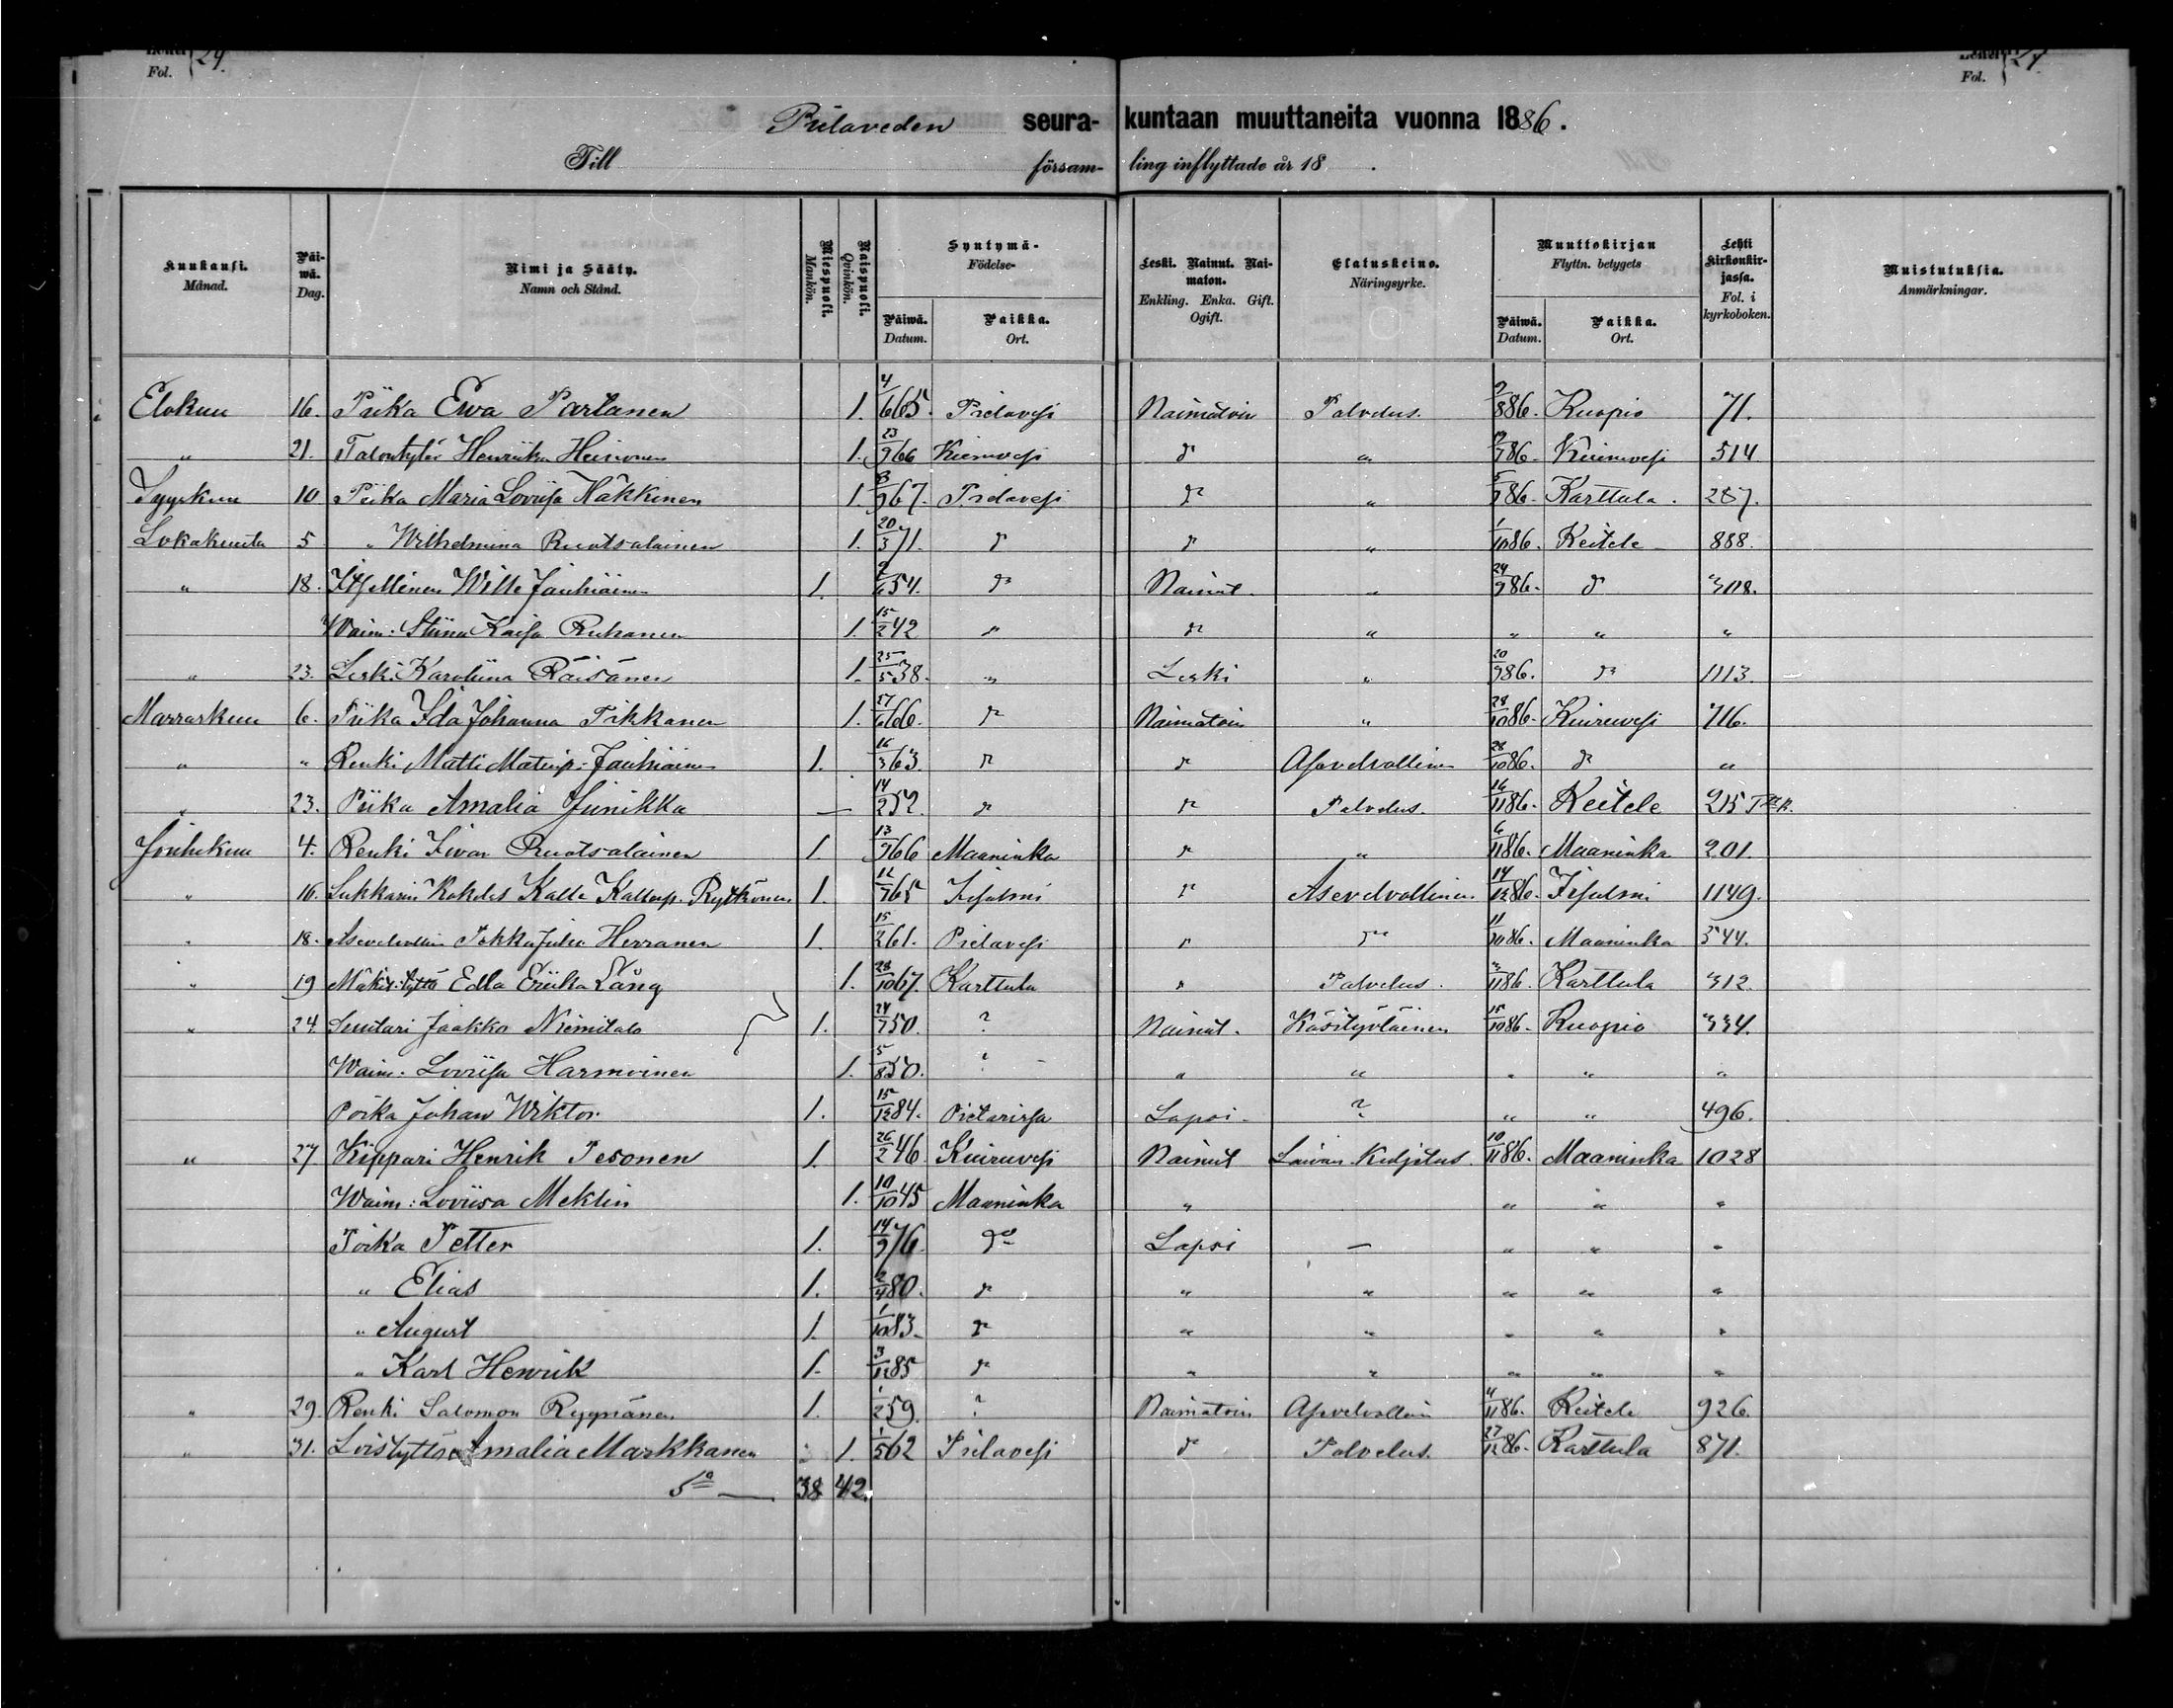 Fol. 24.
Fol. 24
Pielaveden seura- kuntaan muuttaneita vuonna 1886.
Till försam- ling inflyttade år 18 .
Kuukausi. Månad. Päi-wä. Dag. Nimi ja Sääty. Namn och Stånd. Miespuoli. Mankön. Naispuoli. Qvinkön. Syntymä- Födelse- Päiwä. Datum. Paikka. Ort. Leski. Nainut. Nai-maton. Enkling. Enka. Gift. Ogift. Elatuskeino. Näringsyrke. Muuttokirjan Flyttn. betygets Päiwä. Datum. Paikka. Ort. Lehti Kirkonkir-jassa. Fol. i kyrkoboken. Muistutuksia. Anmärkningar.
Elokuu 16. Piika Ewa Partanen 1. 4/6 65. Pielavesi Naimatoin Palvelus. 2/8 86. Kuopio 71.
" 21. Talontytär Henriika Heinonen 1. 23/9 66 Kiuruvesi do " /7 86. Kiuruvesi 514
Syyskuu 10 Piika Maria Loviisa Häkkinen 1. 8/9 67. Pielavesi do " 5/9 86. Karttula. 257.
Lokakuuta 5 " Wilhelmina Ruotsalainen 1. 20/3 71. do do " 1/10 86. Keitele 888.
" 18. Itsellinen Wille Jauhiainen 1. /6 54. do Nainut. " 24/9 86. do 308.
Waim: Stiina Kaisa Ruhanen 1. 15/2 42 do do " " " "
" 23. Leski Karoliina Räisänen 1. 25/5 38. " Leski " 20/9 86. do 1113.
Marraskuu 6. Piika Ida Johanna Tikkanen 1. 27/6 66. do Naimatoin " 28/10 86. Kiuruvesi 716.
" " Renki Matti Matinp. Jauhiainen 1. 16/3 63. do do Asevelvollinen 28/10 86. do "
" 23. Piika Amalia Junikka — 14/2 52. do do Palvelus. 16/11 86. Keitele 215
Joulukuu 4. Renki Iivar Ruotsalainen 1. 13/9 66 Maaninka do " 6/11 86. Maaninka 201.
" 16. Lukkarin Kokelas Kalle Kallenp. Rytkönen 1. 12/7 65 Iisalmi do Asevelvollinen 14/12 86. Iisalmi 1149.
" 18. Asevelvollinen Pekka Juho Herranen 1. 15/2 61. Pielavesi do do 11/10 86. Maaninka 544.
" 19 Mäkit:tyttö Edla Eriika Lång 1. 28/10 67. Karttula do Palvelus. 3/11 86. Karttula 312
" 24. Suutari Jaakko Niemitalo 1. 24/7 50. ? Nainut. Käsityöläinen 15/10 86. Kuopio 334.
Waim. Loviisa Harmoinen 1. 5/8 50. ? " " " " "
Poika Johan Wiktor. 1. 15/12 84. Pietarissa Lapsi ? " " 496.
" 27. Kippari Henrik Pesonen 1. 26/2 46 Kiuruvesi Nainut Laivan Kuljetus. 10/11 86. Maaninka 1028
Waim: Loviisa Meklin 1. 10/10 45 Maaninka " " " "
Poika Petter 1. 14/9 76. do Lapsi — " " "
" Elias 1. 2/4 80. do " " " " "
" August 1. 1/10 83. do " " " " "
" Karl Henrik 1. 3/12 85 do " " " " "
" 29. Renki Salomon Ryynänen 1. 1/2 59. ? Naimatoin Asevelvollinen 4/11 86. Keitele 926.
" 31. Loistyttö Amalia Markkanen 1. 1/5 62 Pielavesi do Palvelus. 27/12 86. Karttula 871.
Sa — 38 42.